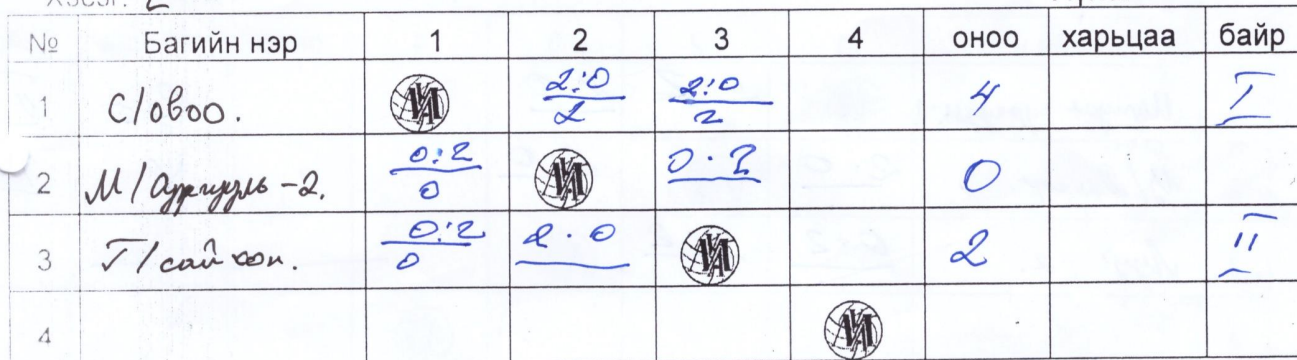 Хэсэг: 2
№ Багийн нэр 1 2 3 4 оноо харьцаа байр
1 С/овоо. 2:0 2:0 4 I
2 2
2 М/сургууль-2. 0:2 0:2 0
0
3 Г/сайхан. 0:2 2:0 2 II
0
4